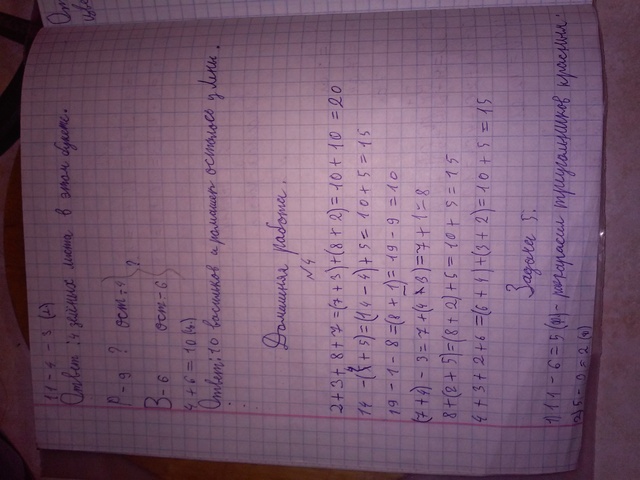 Ответ: 4 жёлтых мата в этом букете.
Р - 9 ? ост-4
?
В - 6 ост-6
4 + 6 = 10 (ц)
Ответ: 10 васильков и ромашек осталось у Лены.
Домашняя работа.
№4
2 + 3 + 8 + 7 = (7 + 3) + (8 + 2) = 10 + 10 = 20
= (14 - 4) + 5 = 10 + 5 = 15
19 - 1 - 8 = (8 + 1) = 19 - 9 = 10
(7 + 4) - 3 = 7 + (4 - 3) = 7 + 1 = 8
8 + (2 + 5) = (8 + 2) + 5 = 10 + 5 = 15
4 + 3 + 2 + 6 = (6 + 4) + (3 + 2) = 10 + 5 = 15
Задача 5.
1) 11 - 6 = 5 - покрасил треугольников красным.
2) 5 - 3 = 2